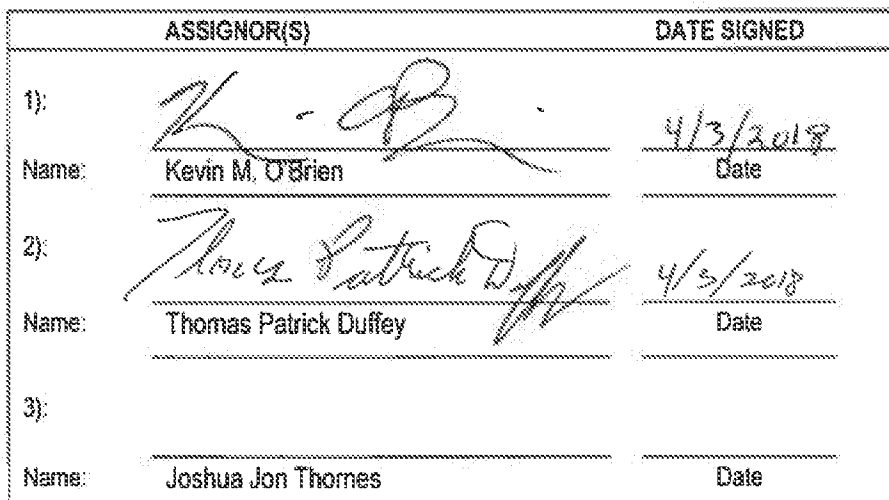 ASSIGNOR(S) DATE SIGNED
1): 4/3/2018
Name: Kevin M. O'Brien Date
2): Thomas Patrick Duffey 4/3/2018
Name: Thomas Patrick Duffey Date
3):
Name: Joshua Jon Thornes Date